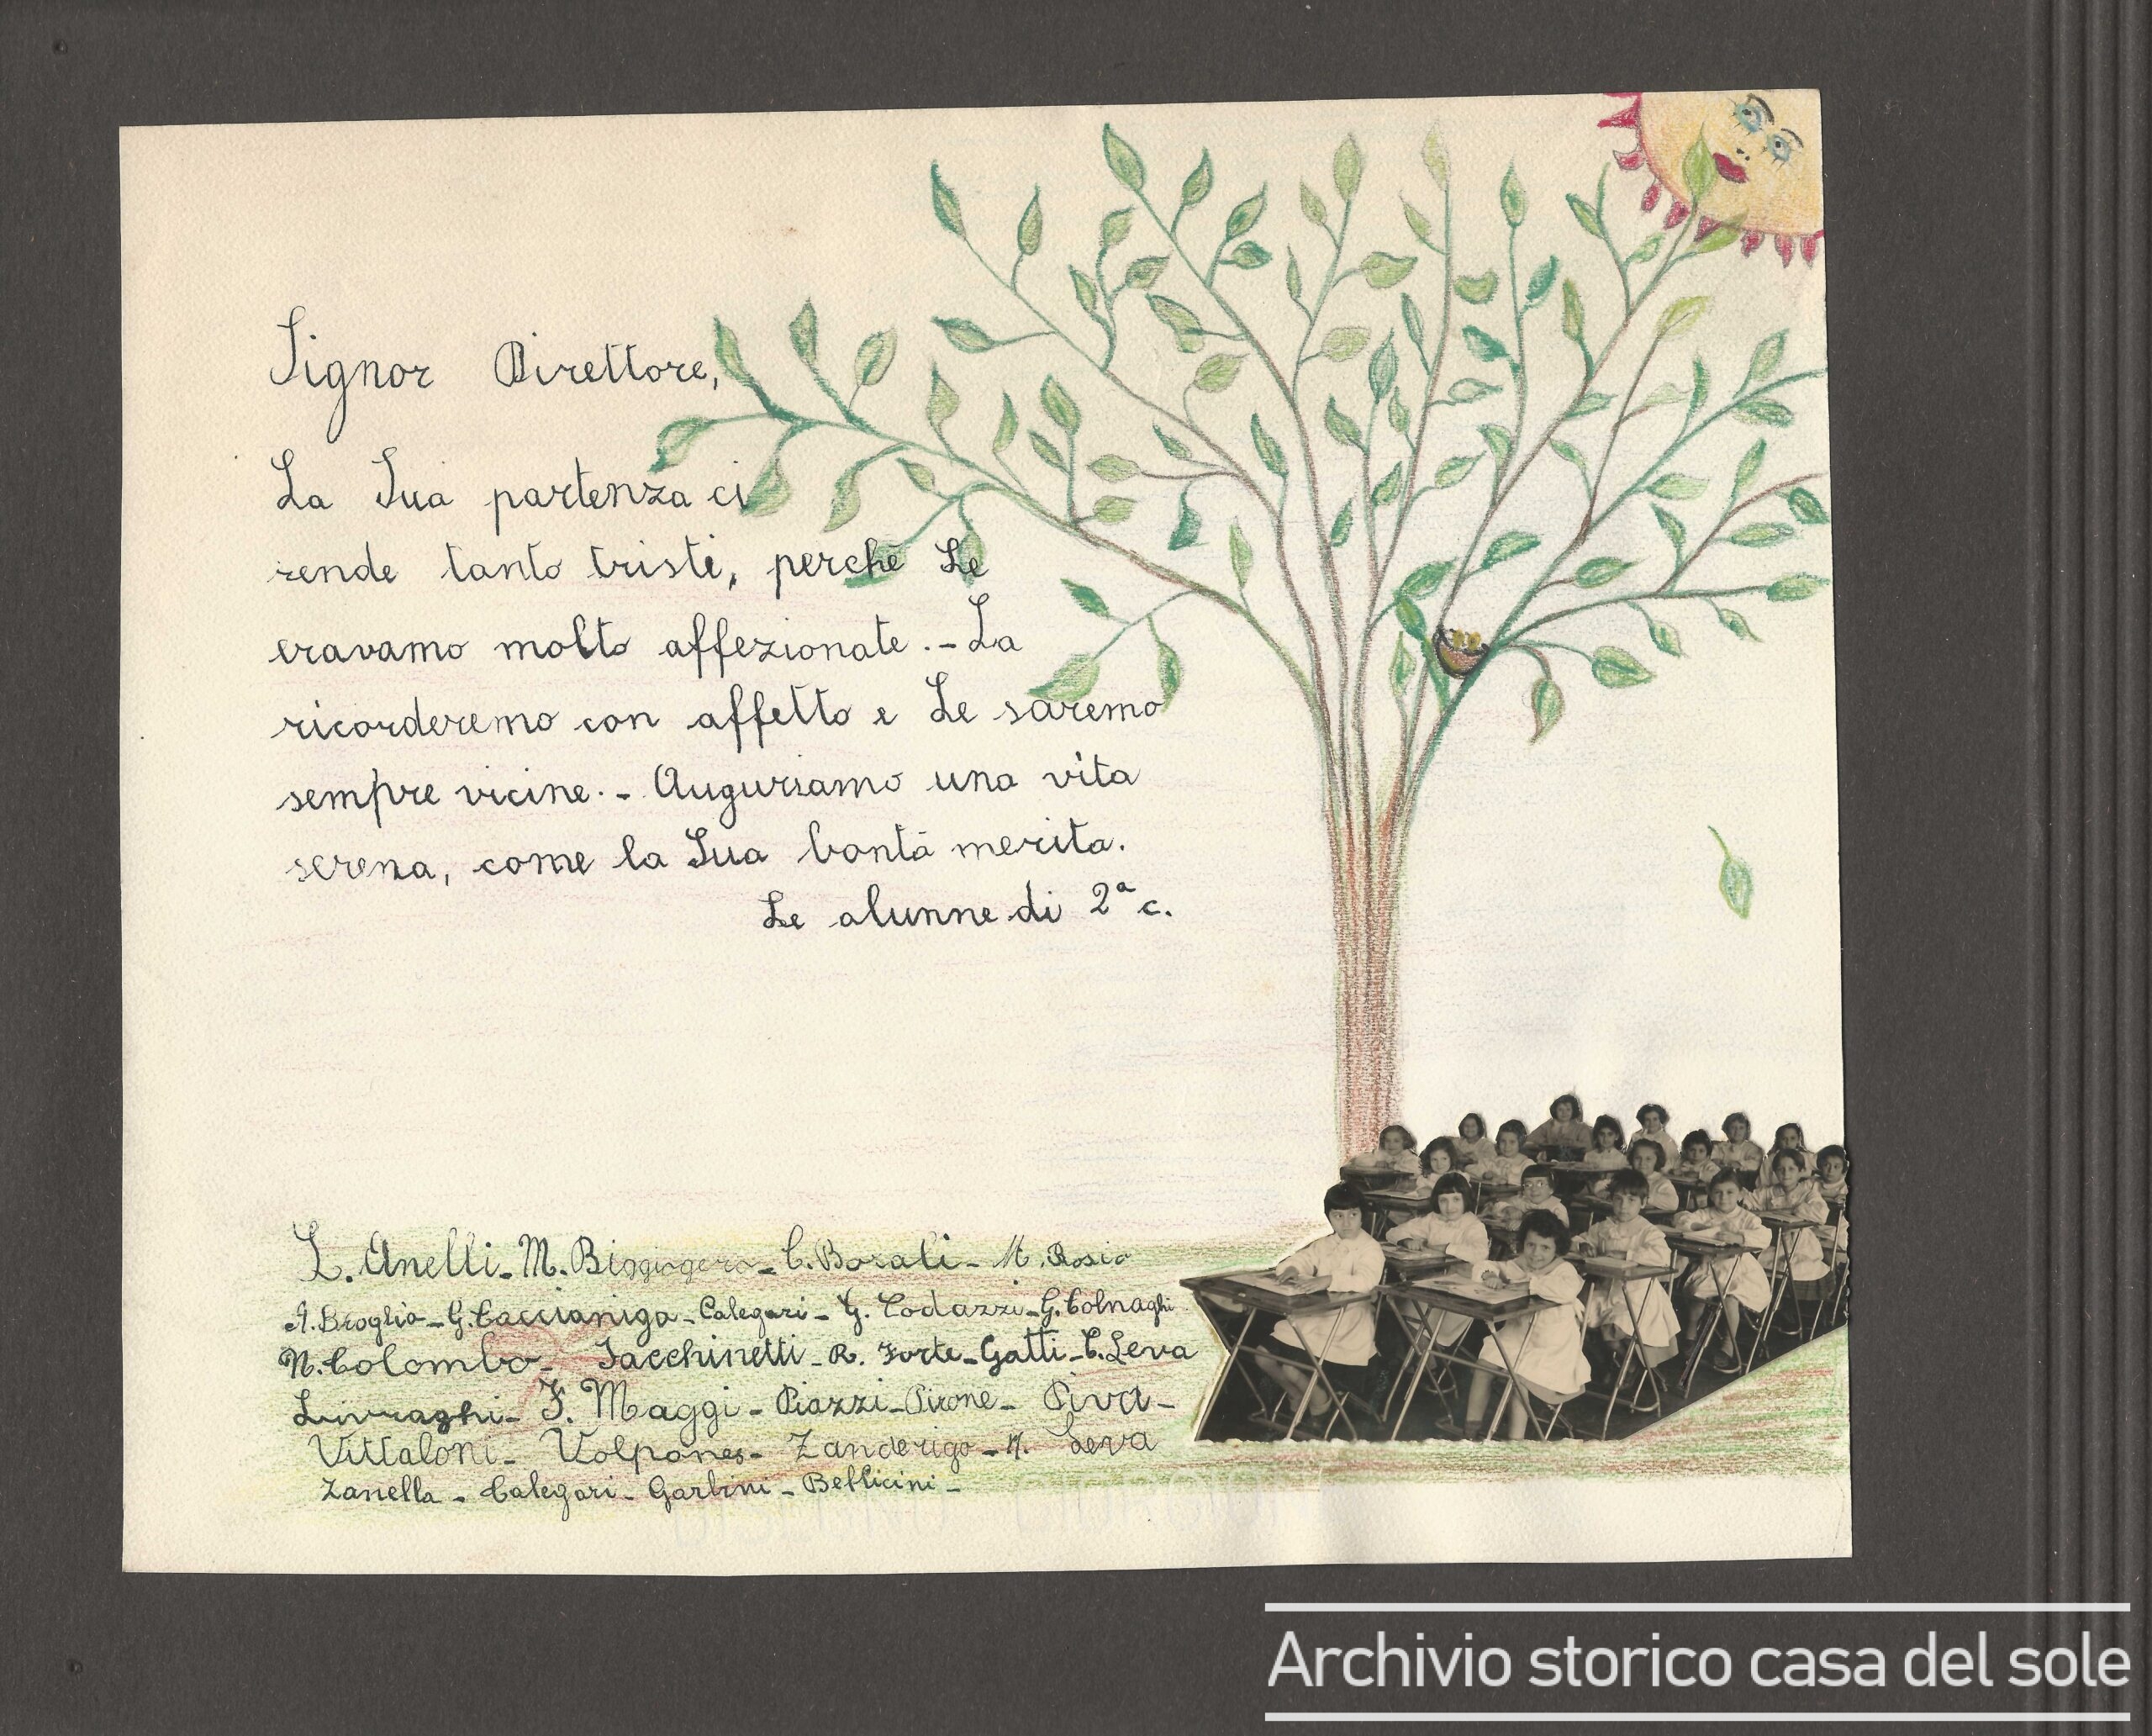 Signor Direttore,
La Sua partenza ci
rende tanto tristi, perchè Le
eravamo molto affezionate.-La
ricorderemo con affetto e Le saremo
sempre vicine.- Auguriamo una vita
serena, come la Sua bontà merita.
Le alunne di 2ª c.
L. Anelli- M. Biggiogero- C. Borali- M. Bosio
A. Broglia- G. Caccianiga- Calegari- G. Codazzi- G. Colnaghi
N. Colombo- Facchinetti- R. Forte- Gatti- C. Leva
Livraghi- F. Maggi- Piazzi- Pirone- Piva-
Vittaloni- Volpones- Zanderigo- M. Leva
Zanella- Calegari- Garbini- Bellicini-
Archivio storico casa del sole